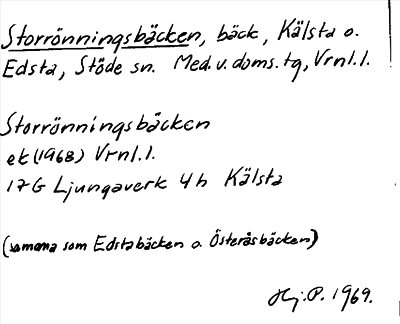 Storrönningsbäcken, bäck, Kälsta o.
Edsta, Stöde sn. Med. v. doms. tg, Vrnl. l.
Storrönningsbäcken
ek (1968) Vrnl. l.
17G Ljungaverk 4h Kälsta
(samma som Edstabäcken o. Österåsbäcken)
Hj. P. 1969.